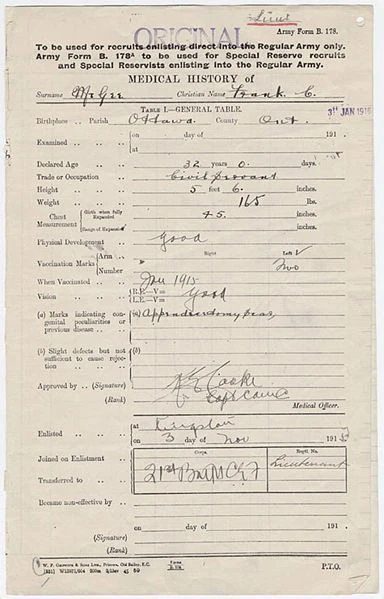 Lieut
ORIGINAL
Army Form B. 178.
To be used for recruits enlisting direct into the Regular Army only.
Army Form B. 178A to be used for Special Reserve recruits
and Special Reservists enlisting into the Regular Army.
MEDICAL HISTORY of
Surname McGee Christian Name Frank C.
TABLE I.—GENERAL TABLE.
3 JAN 1916
Birthplace .. Parish Ottawa County Ont.
Examined .. .. on day of 191
at
Declared Age .. .. 32 years 0 days.
Trade or Occupation .. Civil Servant
Height .. .. 5 feet 6. inches.
Weight .. .. 165 lbs.
Chest Measurement Girth when fully Expanded 45. inches.
Range of Expansion inches.
Physical Development .. good
Vaccination Marks Arm .. Right Left
Number Two
When Vaccinated .. Jan 1915
Vision .. .. R.E.—V= Good
L.E.—V=
(a) Marks indicating con- (a) Appendectomy scar
genital peculiarities or
previous disease ..
(b) Slight defects but not (b)
sufficient to cause rejec-
tion ..
Approved by .. (Signature) Cooke
(Rank) Capt CAMC
Medical Officer.
Enlisted .. .. at Kingston
on 3 day of Nov 191
Corps. Regtl. No.
Joined on Enlistment .. 21st Battn CEF Lieutenant
Transferred to ..
Became non-effective by ..
on day of 191 .
(Signature)
(Rank)
P.T.O.